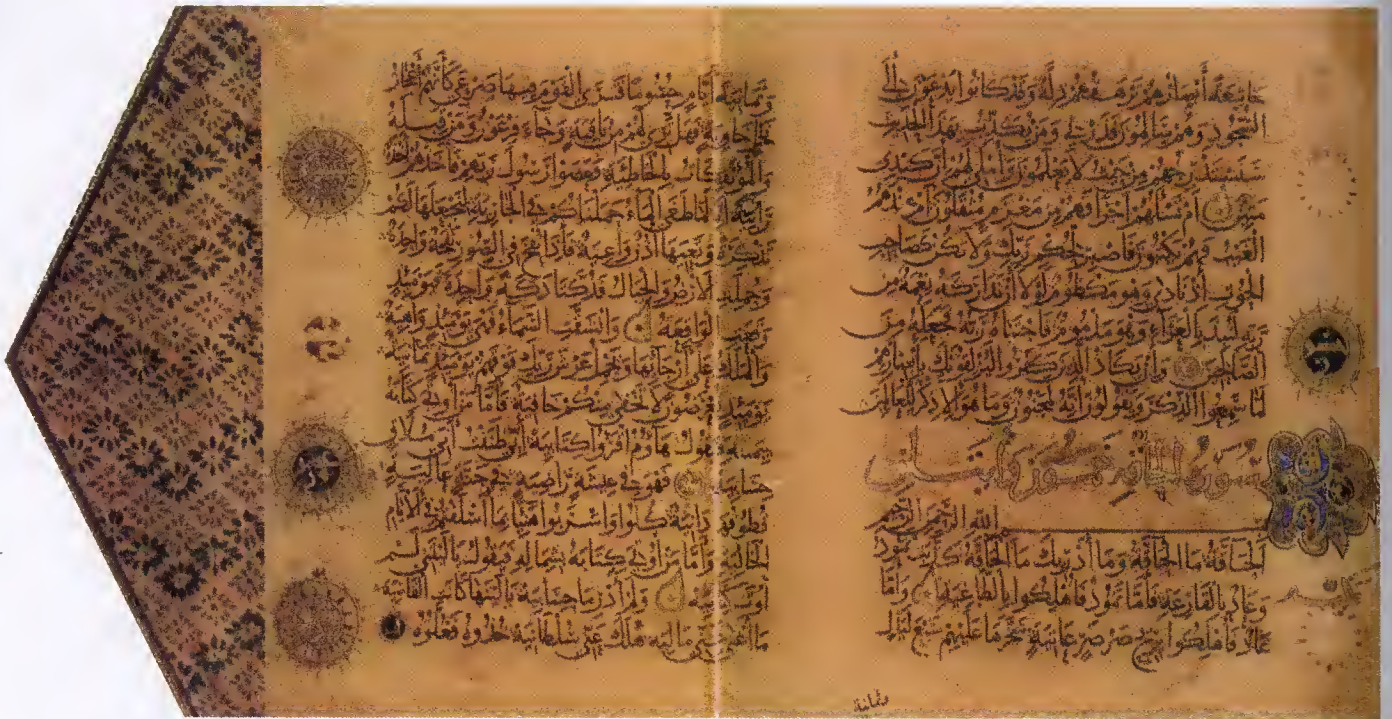 خاشعة أبصارهم ترهقهم ذلة وقد كانوا يدعون إلى
السجود وهم سالمون فذرني ومن يكذب بهذا الحديث
سنستدرجهم من حيث لا يعلمون وأملي لهم إن كيدي
متين أم تسألهم أجرا فهم من مغرم مثقلون أم عندهم
الغيب فهم يكتبون فاصبر لحكم ربك ولا تكن كصاحب
الحوت إذ نادى وهو مكظوم لولا أن تداركه نعمة من
ربه لنبذ بالعراء وهو مذموم فاجتباه ربه فجعله من
الصالحين وإن يكاد الذين كفروا ليزلقونك بأبصارهم
لما سمعوا الذكر ويقولون إنه لمجنون وما هو إلا ذكر للعالمين
سورة الحاقة خمسون وآيتان
بسم الله الرحمن الرحيم
الحاقة ما الحاقة وما أدريك ما الحاقة كذبت ثمود
وعاد بالقارعة فأما ثمود فأهلكوا بالطاغية وأما
عاد فأهلكوا بريح صرصر عاتية سخرها عليهم سبع ليال
وثمانية
وثمانية أيام حسوما فترى القوم فيها صرعى كأنهم أعجاز
نخل خاوية فهل ترى لهم من باقية وجاء فرعون ومن قبله
والمؤتفكات بالخاطئة فعصوا رسول ربهم فأخذهم أخذة
رابية إنا لما طغا الماء حملناكم في الجارية لنجعلها لكم
تذكرة وتعيها أذن واعية فإذا نفخ في الصور نفخة واحدة
وحملت الأرض والجبال فدكتا دكة واحدة فيومئذ
وقعت الواقعة وانشقت السماء فهي يومئذ واهية
والملك على أرجائها ويحمل عرش ربك فوقهم يومئذ ثمانية
يومئذ تعرضون لا تخفى منكم خافية فأما من أوتي كتابه
بيمينه فيقول هاؤم اقرؤا كتابيه إني ظننت أني ملاق
حسابيه فهو في عيشة راضية في جنة عالية
قطوفها دانية كلوا واشربوا هنيئا بما أسلفتم في الأيام
الخالية وأما من أوتي كتابه بشماله فيقول يا ليتني لم
أوت كتابيه ولم أدر ما حسابيه يا ليتها كانت القاضية
ما أغنى عني ماليه هلك عني سلطانيه خذوه فغلوه